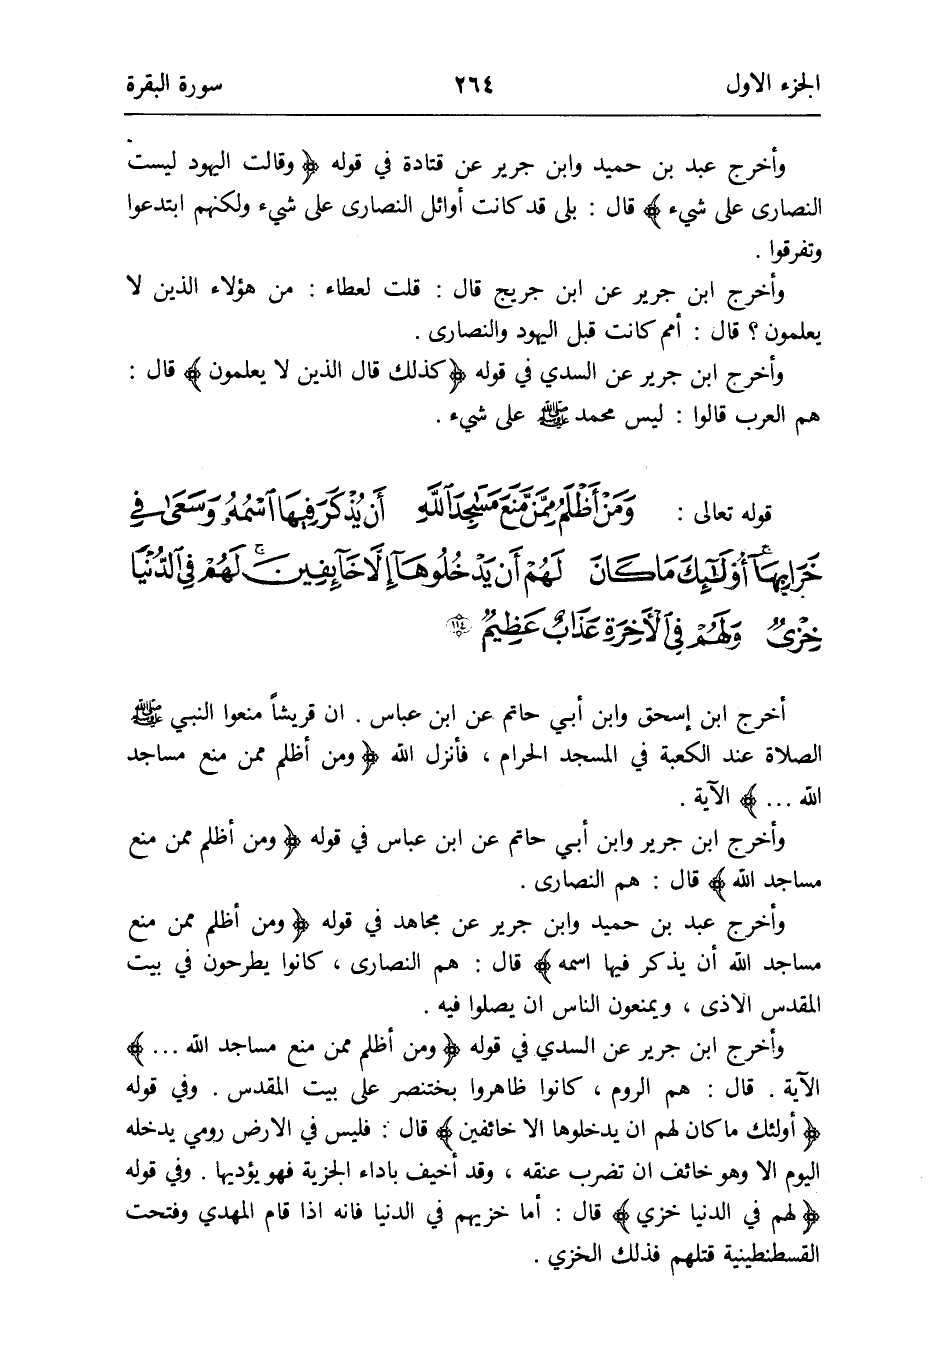 الجزء الاول ٢٦٤ سورة البقرة
وأخرج عبد بن حميد وابن جرير عن قتادة في قوله ﴿ وقالت اليهود ليست
النصارى على شيء ﴾ قال : بلى قد كانت أوائل النصارى على شيء ولكنهم ابتدعوا
وتفرقوا .
وأخرج ابن جرير عن ابن جريج قال : قلت لعطاء : من هؤلاء الذين لا
يعلمون ؟ قال : أمم كانت قبل اليهود والنصارى .
وأخرج ابن جرير عن السدي في قوله ﴿ كذلك قال الذين لا يعلمون ﴾ قال :
هم العرب قالوا : ليس محمد ﷺ على شيء .
قوله تعالى : وَمَنْ أَظْلَمُ مِمَّن مَّنَعَ مَسَٰجِدَ ٱللَّهِ أَن يُذْكَرَ فِيهَا ٱسْمُهُۥ وَسَعَىٰ فِي
خَرَابِهَآ ۚ أُوْلَٰٓئِكَ مَا كَانَ لَهُمْ أَن يَدْخُلُوهَآ إِلَّا خَآئِفِينَ ۚ لَهُمْ فِي ٱلدُّنْيَا
خِزْيٌ وَلَهُمْ فِي ٱلْأَخِرَةِ عَذَابٌ عَظِيمٌ ١١٤
أخرج ابن إسحق وابن أبي حاتم عن ابن عباس . ان قريشاً منعوا النبي ﷺ
الصلاة عند الكعبة في المسجد الحرام ، فأنزل الله ﴿ ومن أظلم ممن منع مساجد
الله ... ﴾ الآية .
وأخرج ابن جرير وابن أبي حاتم عن ابن عباس في قوله ﴿ ومن أظلم ممن منع
مساجد الله ﴾ قال : هم النصارى .
وأخرج عبد بن حميد وابن جرير عن مجاهد في قوله ﴿ ومن أظلم ممن منع
مساجد الله أن يذكر فيها اسمه ﴾ قال : هم النصارى ، كانوا يطرحون في بيت
المقدس الاذى ، ويمنعون الناس ان يصلوا فيه .
وأخرج ابن جرير عن السدي في قوله ﴿ ومن أظلم ممن منع مساجد الله ... ﴾
الآية . قال : هم الروم ، كانوا ظاهروا بختنصر على بيت المقدس . وفي قوله
﴿ أولئك ما كان لهم ان يدخلوها الا خائفين ﴾ قال : فليس في الارض رومي يدخله
اليوم الا وهو خائف ان تضرب عنقه ، وقد أخيف باداء الجزية فهو يؤديها . وفي قوله
﴿ لهم في الدنيا خزي ﴾ قال : أما خزيهم في الدنيا فانه اذا قام المهدي وفتحت
القسطنطينية قتلهم فذلك الخزي .